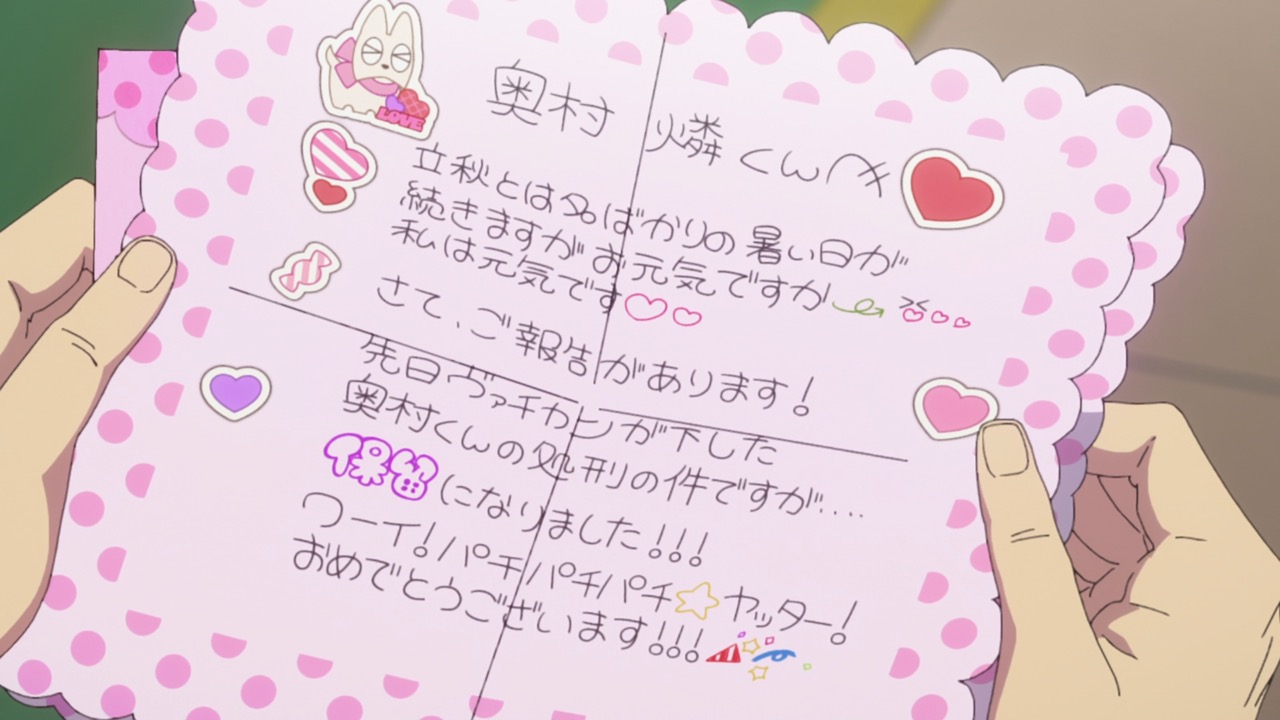 LOVE
奥村 燐くんへ
立秋とは名ばかりの暑い日が
続きますがお元気ですか
私は元気です
さて、ご報告があります!
先日ヴァチカンが下した
奥村くんの処刑の件ですが....
保留になりました!!!
ワーイ!パチパチパチ☆ヤッター!
おめでとうございます!!!